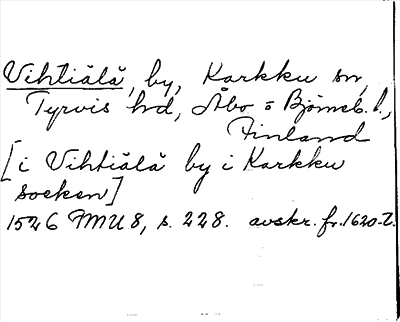 Vihtiälä, by, Karkku sn,
Tyrvis hd, Åbo o Björneb. l.,
Finland
[i Vihtiälä by i Karkku
socken]
1526 FMU 8, s. 228. avskr. fr. 1620-t.